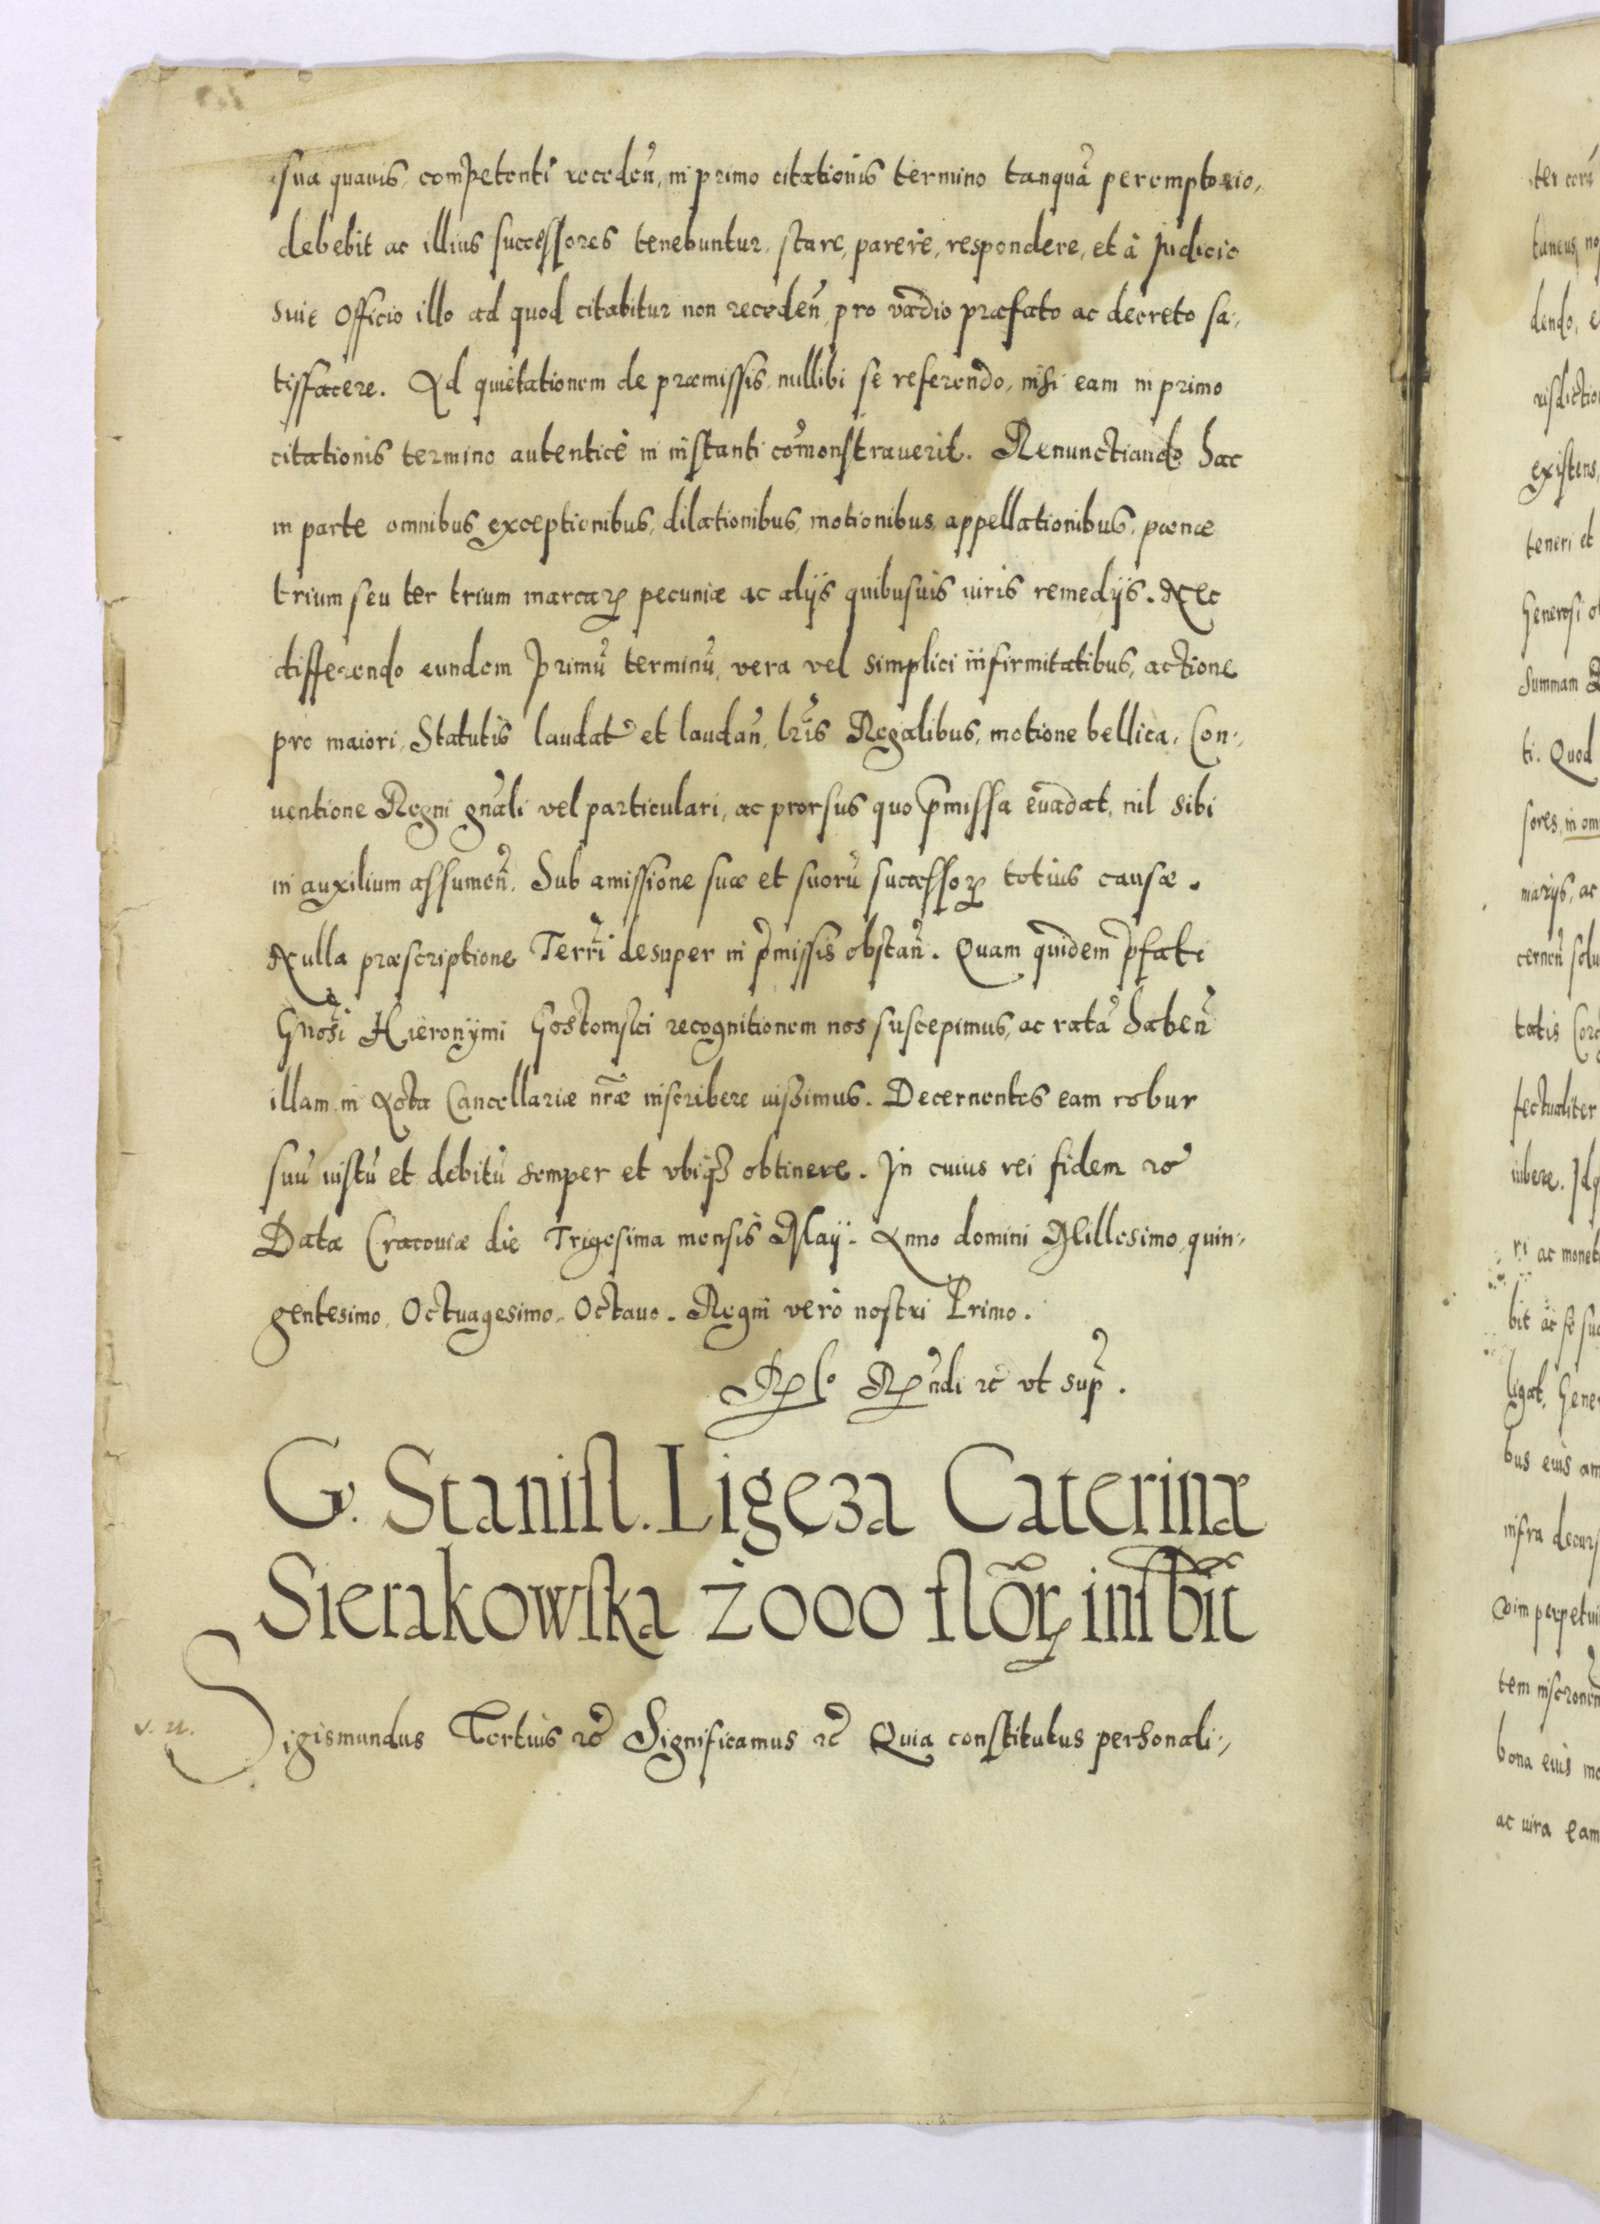 sua quauis, competenti receden̄, in primo citationis termino tanquā peremptorio,
debebit ac illius successores tenebuntur, stare, parere, respondere, et à Judicio
siue Officio illo ad quod citabitur non receden̄, pro vadio præfato ac decreto sa-,
tisfacere. Ad quietationem de præmissis, nullibi se referendo, nisi eam in primo
citationis termino autenticè in instanti com̄onstrauerit. Renunctiando hac
in parte omnibus exceptionibus, dilationibus, motionibus, appellationibus, pœnæ
trium seu ter trium marcaꝝ pecuniæ ac alijs quibusuis iuris remedijs. Nec
differendo eundem Primū terminū, vera vel simplici infirmitatibus, actione
pro maiori, Statutis laudat̄ et laudan̄, lr̄is Regalibus, motione bellica, Con-,
uentione Regni gn̄ali vel particulari, ac prorsus quo p̄missa euadat, nil sibi
in auxilium assumen̄. Sub amissione suæ et suorū successoꝝ totius causæ.
Nulla præscriptione Terrr̄i desuper in p̄missis obstan̄. Quam quidem p̄fati
Gn̄osi Hieronymi Gostomsci recognitionem nos suscepimus, ac ratā haben̄
illam in Acta Cancellariæ nr̄æ inscribere iussimus. Decernentes eam robur
suū iustū et debitū semper et vbiqꝫ obtinere. In cuius rei fidem ꝛc̄
Datæ Cracouiæ die Trigesima mensis Maij. Anno domini Millesimo, quin-,
gentesimo, Octuagesimo, Octauo. Regni vero nostri Primo.
Rlꝰ Rn̄di ꝛc̄ vt sup̄.
G. Stanisl. Ligeza Caterinæ
Sierakowska 2000 floꝝ insbit̄
v. n. Sigismundus Tertius ꝛc̄ Significamus ꝛc̄ Quia constitutus personali-,
ter corā
taneus no
dendo, e
risdictio
existens,
teneri et
Generosi
Summam
ti. Quod
sores, in om
marijs, ac
cernen̄ solu
tatis
fectualiter
iubere.
ri ac monet
bit ac se suc
ligat, Gene
bus eius am
infra decurs
perpetui
tem inscrōnem
bona eius mo
ac iura eam